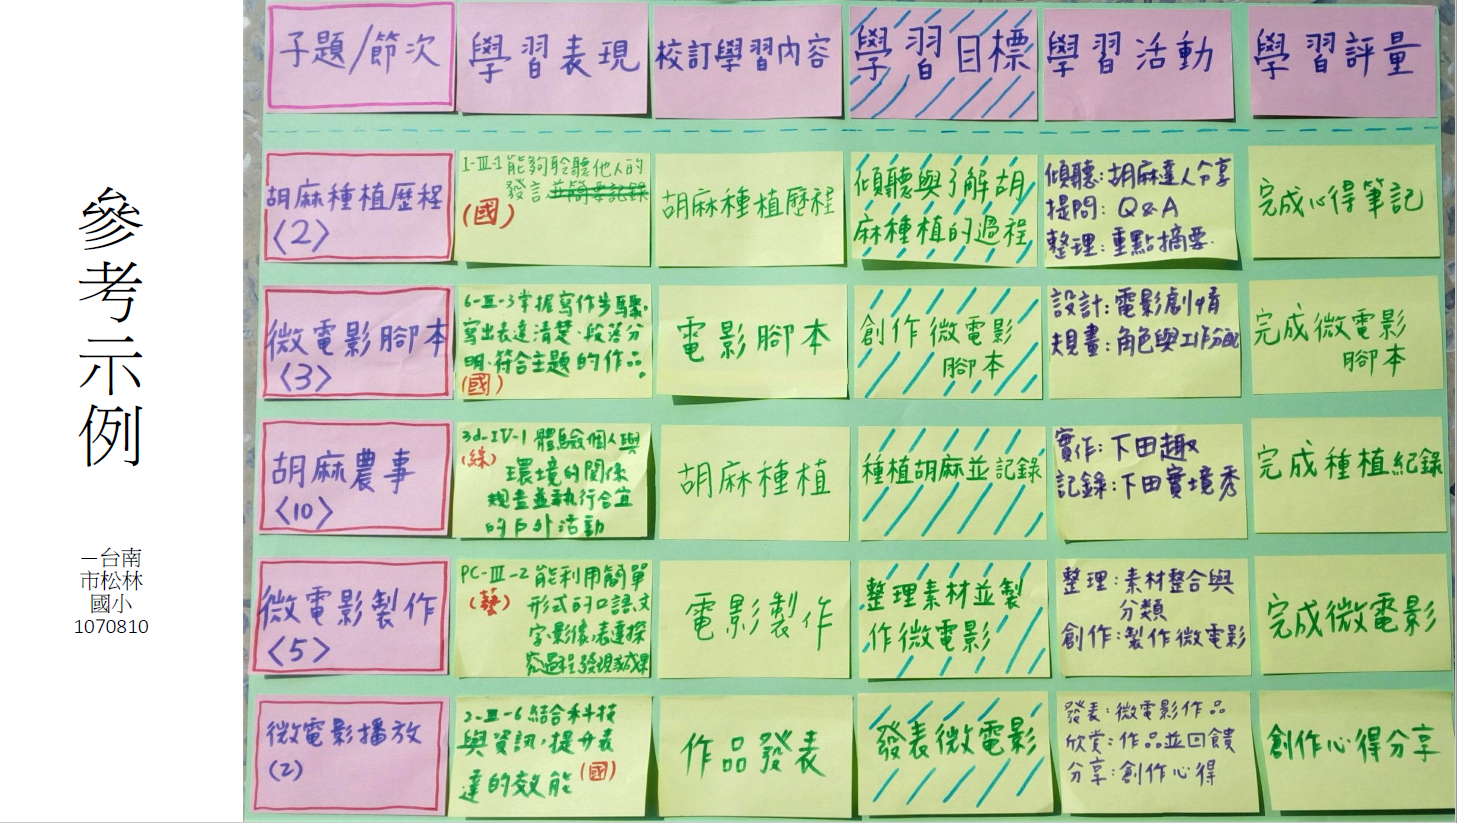 參考示例
－台南
市松林
國小
1070810
子題/節次
學習表現
校訂學習內容
學習目標
學習活動
學習評量
胡麻種植歷程
〈2〉
1-Ⅲ-1能夠聆聽他人的
發言並簡要記錄
(國)
胡麻種植歷程
傾聽與了解胡
麻種植的過程
傾聽:胡麻達人分享
提問: Q&A
整理:重點摘要.
完成心得筆記
微電影腳本
〈3〉
6-Ⅲ-3掌握寫作步驟,
寫出表達清楚、段落分
明、符合主題的作品。
(國)
電影腳本
創作微電影
腳本
設計:電影劇情
規畫:角色與工作分配
完成微電影
腳本
胡麻農事
〈10〉
3d-IV-1 體驗個人與
(綜)
環境的關係
規畫並執行合宜
的戶外活動
胡麻種植
種植胡麻並記錄
實作:下田趣
記錄:下田實境秀
完成種植紀錄
微電影製作
〈5〉
PC-Ⅲ-2 能利用簡單
(藝)
形式的口語、文
字、影像,表達探
究過程、發現或成果
電影製作
整理素材並製
作微電影
整理:素材整合與
分類
創作:製作微電影
完成微電影
微電影播放
(2)
2-Ⅲ-6結合科技
與資訊,提升表
達的效能
(國)
作品發表
發表微電影
發表:微電影作品
欣賞:作品並回饋
分享:創作心得
創作心得分享